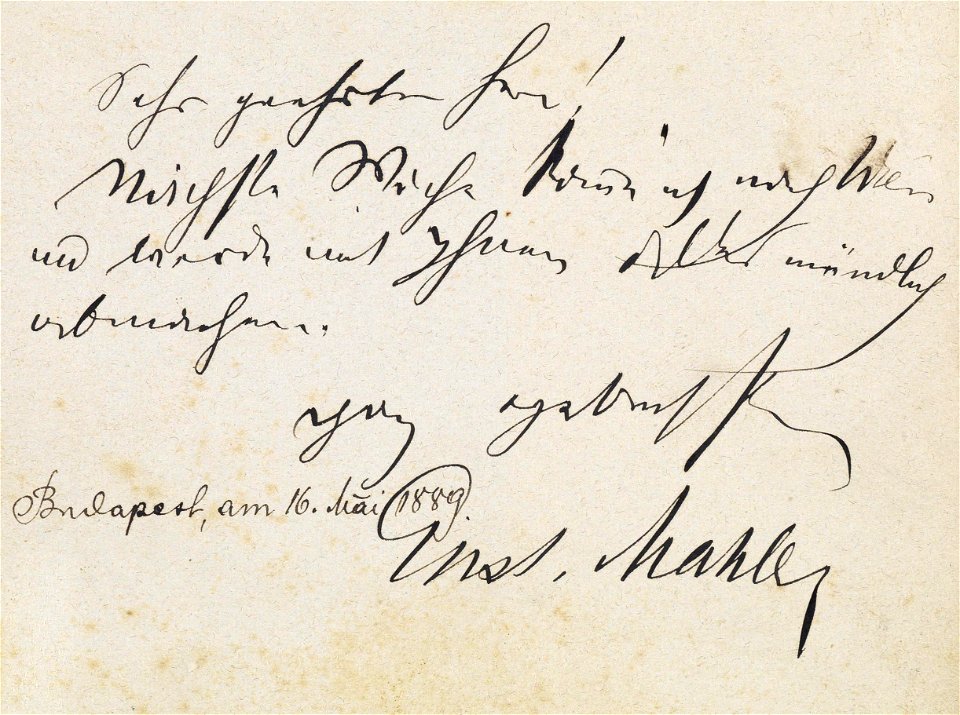 Sehr geehrter Herr!
Nächste Woche komme ich nach Wien
und werde mit Ihnen Alles mündlich
abmachen.
Ganz ergebenster
Budapest, am 16. Mai 1889
Gust. Mahler